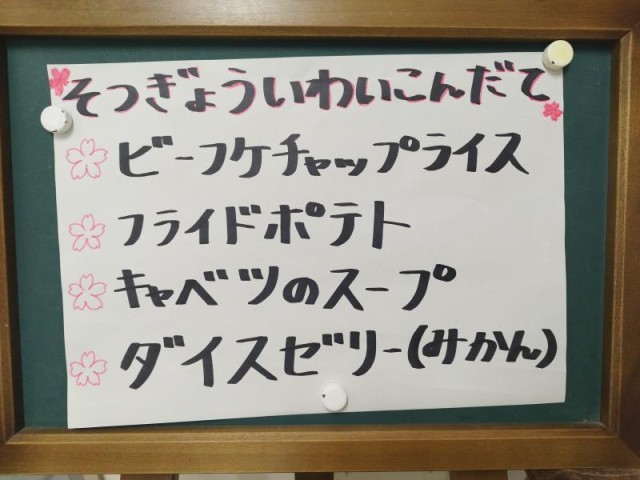 そつぎょういわいこんだて
ビーフケチャップライス
フライドポテト
キャベツのスープ
ダイスゼリー(みかん)